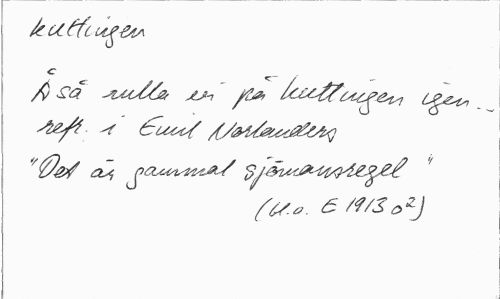 kuttingen
Å så rulla vi på kuttingen igen...
refr. i Emil Norlanders
"Det är gammal sjömansregel"
(H.o. E 1913 o²)